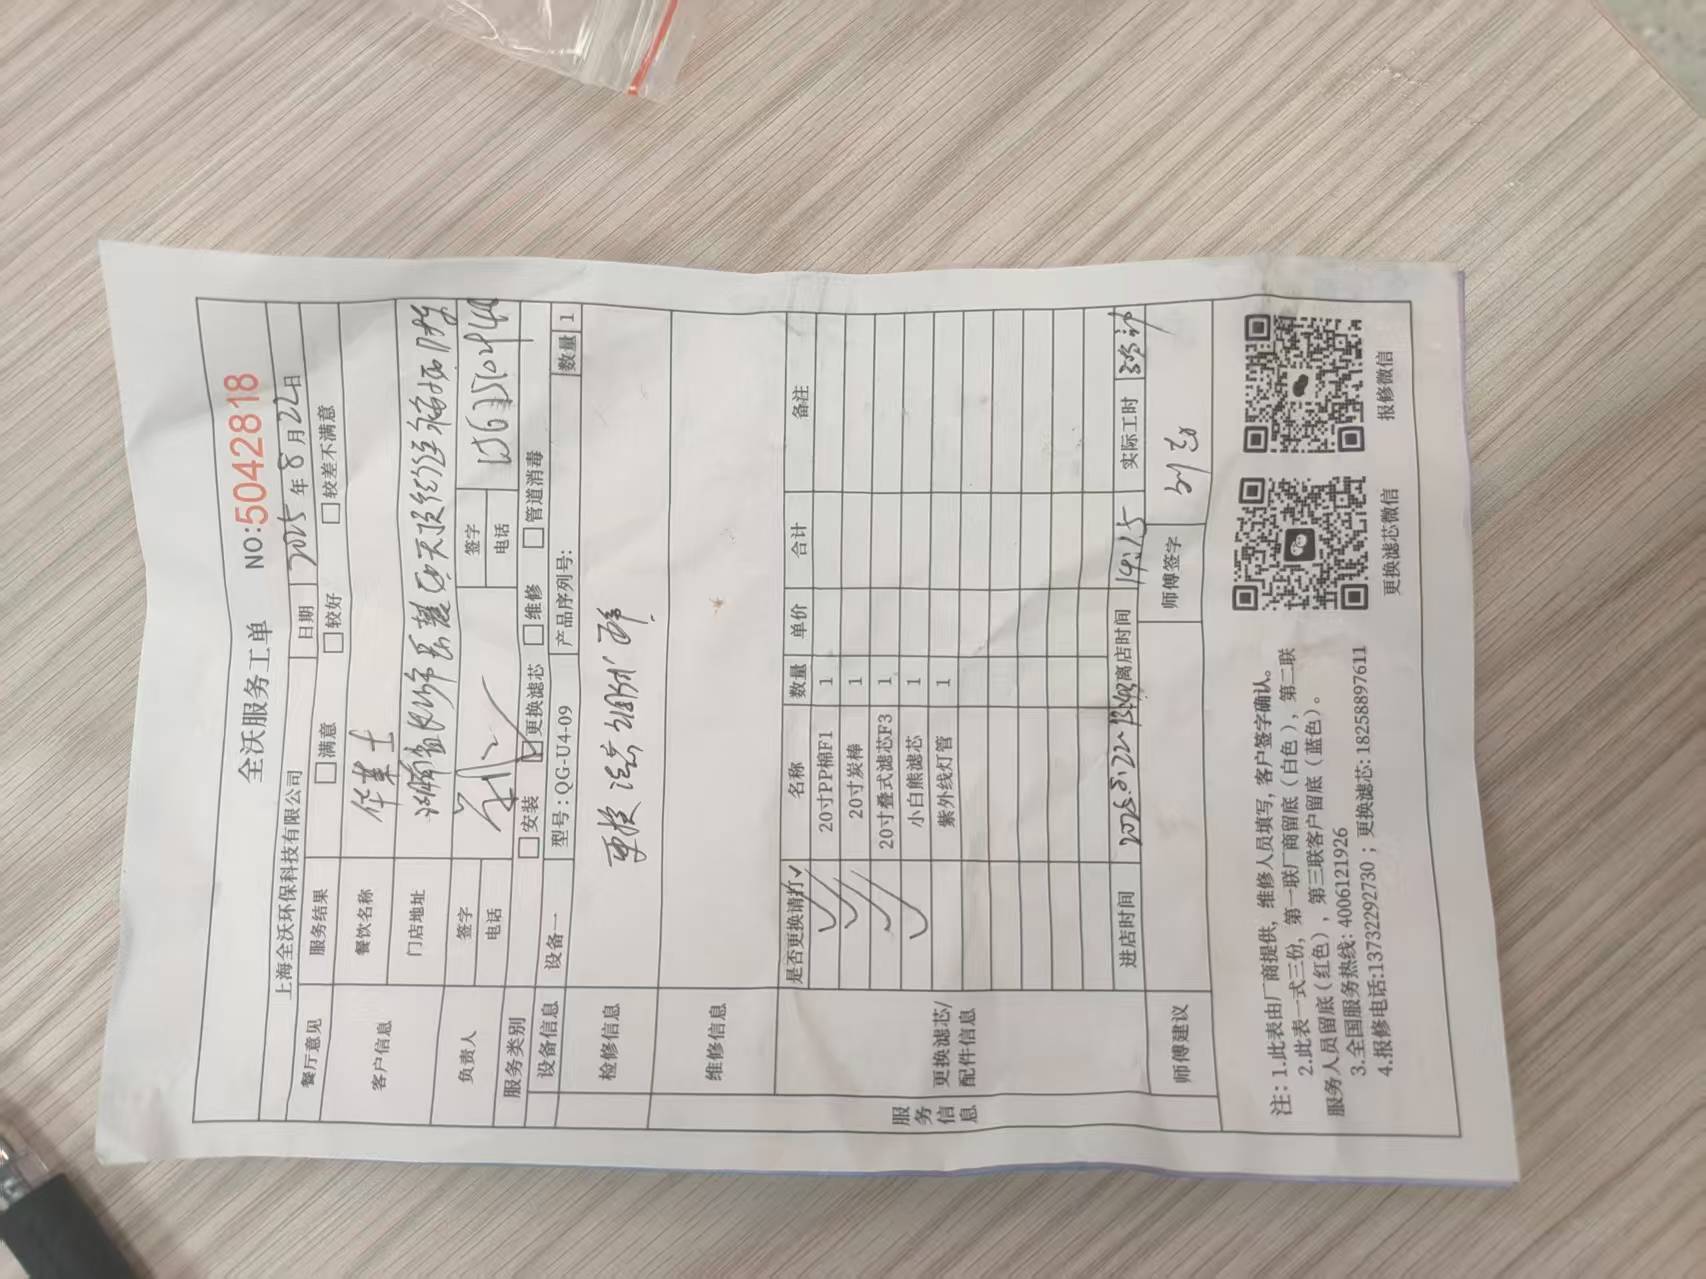 全沃服务工单 NO:5042818
上海全沃环保科技有限公司 日期 2025年8月22日
餐厅意见 服务结果 □满意 □较好 □较差不满意
客户信息 餐饮名称 华莱士
门店地址 湖南省长沙市
负责人 签字 签字
电话 电话
服务类别 □安装 □更换滤芯 □维修 □管道消毒
设备信息 设备一 型号:QG-U4-09 产品序列号: 数量 1
检修信息 更换滤芯
维修信息
服务信息
更换滤芯/配件信息
是否更换请打✓ 名称 数量 单价 合计 备注
✓ 20寸PP棉F1 1
✓ 20寸炭棒 1
✓ 20寸叠式滤芯F3 1
✓ 小白熊滤芯 1
紫外线灯管 1
进店时间 2025.8.22 离店时间 14:15 实际工时
师傅建议 师傅签字
注: 1.此表由厂商提供, 维修人员填写, 客户签字确认。
2.此表一式三份, 第一联厂商留底 (白色), 第二联
服务人员留底 (红色), 第三联客户留底 (蓝色)。
3.全国服务热线: 4006121926
4.报修电话:13732292730 ; 更换滤芯: 18258897611
更换滤芯微信
报修微信